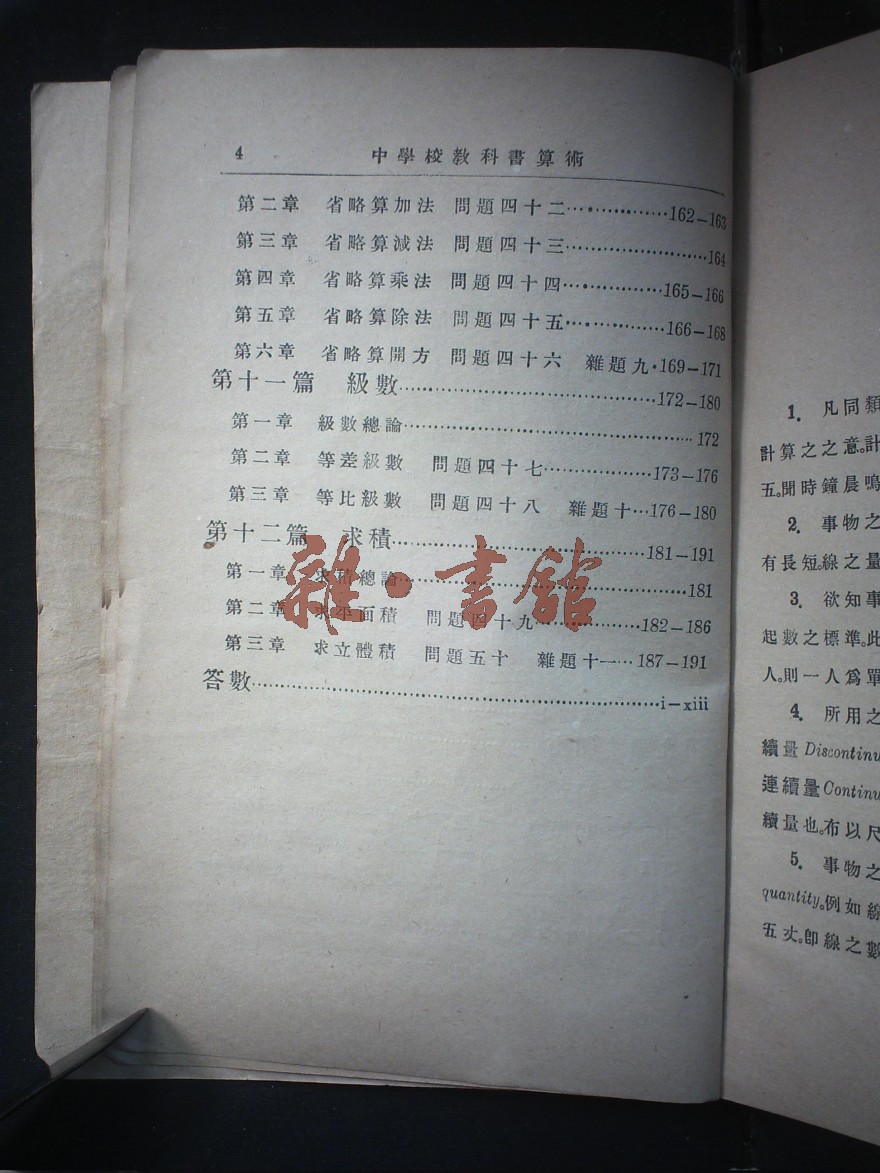 4 中學校教科書算術
第二章 省略算加法 問題四十二……………162—163
第三章 省略算減法 問題四十三……………164
第四章 省略算乘法 問題四十四……………165—166
第五章 省略算除法 問題四十五……………166—168
第六章 省略算開方 問題四十六 雜題九·169—171
第十一篇 級數……………172—180
第一章 級數總論……………172
第二章 等差級數 問題四十七……………173—176
第三章 等比級數 問題四十八 雜題十…176—180
第十二篇 求積……………181—191
第一章 求積總論……………181
第二章 求平面積 問題四十九……………182—186
第三章 求立體積 問題五十 雜題十一…187—191
答數……………i—xiii
雜·書館
1. 凡同類
計算之之意。計
五。聞時鐘晨鳴
2. 事物之
有長短。線之量
3. 欲知事
起數之標準。此
人。則一人爲單
4. 所用之
續量Discontinu
連續量Continu
續量也。布以尺
5. 事物之
quantity。例如線
五丈。卽線之數